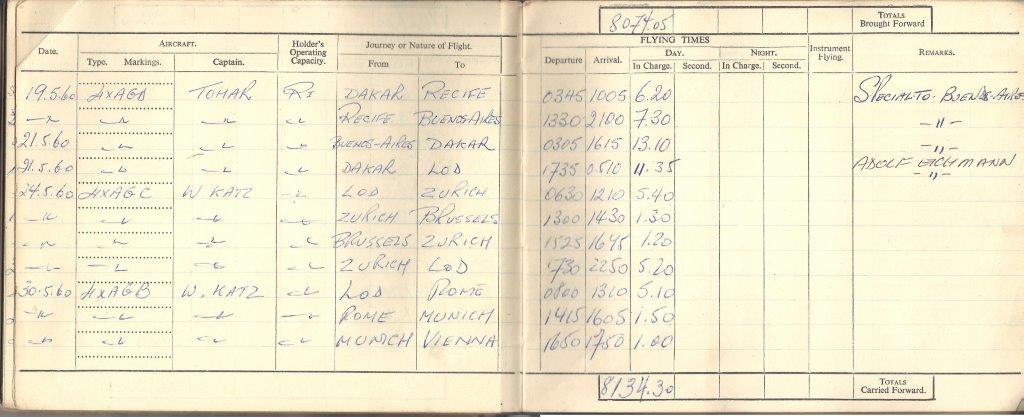 8074.05 TOTALS Brought Forward
Date. AIRCRAFT. Holder's Operating Capacity. Journey or Nature of Flight. FLYING TIMES Instrument Flying. REMARKS.
Departure Arrival. DAY. NIGHT.
Type. Markings. Captain. From To In Charge. Second. In Charge. Second.
19.5.60 4XAGD TOHAR DAKAR RECIFE 0345 1005 6.20 SPECIAL TO. BUENOS-AIRES
-"- -"- -"- -"- RECIFE BUENOSAIRES 1330 2100 7.30 -"-
21.5.60 -"- -"- -"- BUENOS-AIRES DAKAR 0305 1615 13.10 -"-
21.5.60 -"- -"- -"- DAKAR LOD 1735 0510 11.35 ADOLF EICHMANN -"-
24.5.60 4XAGC W KATZ -"- LOD ZURICH 0630 1210 5.40
-"- -"- -"- -"- ZURICH BRUSSELS 1300 1430 1.30
-"- -"- -"- -"- BRUSSELS ZURICH 1525 1645 1.20
-"- -"- -"- -"- ZURICH LOD 1730 2250 5.20
30.5.60 4XAGB W. KATZ -"- LOD ROME 0800 1310 5.10
-"- -"- -"- -"- ROME MUNICH 1415 1605 1.50
-"- -"- -"- -"- MUNICH VIENNA 1650 1750 1.00
8134.30 TOTALS Carried Forward.